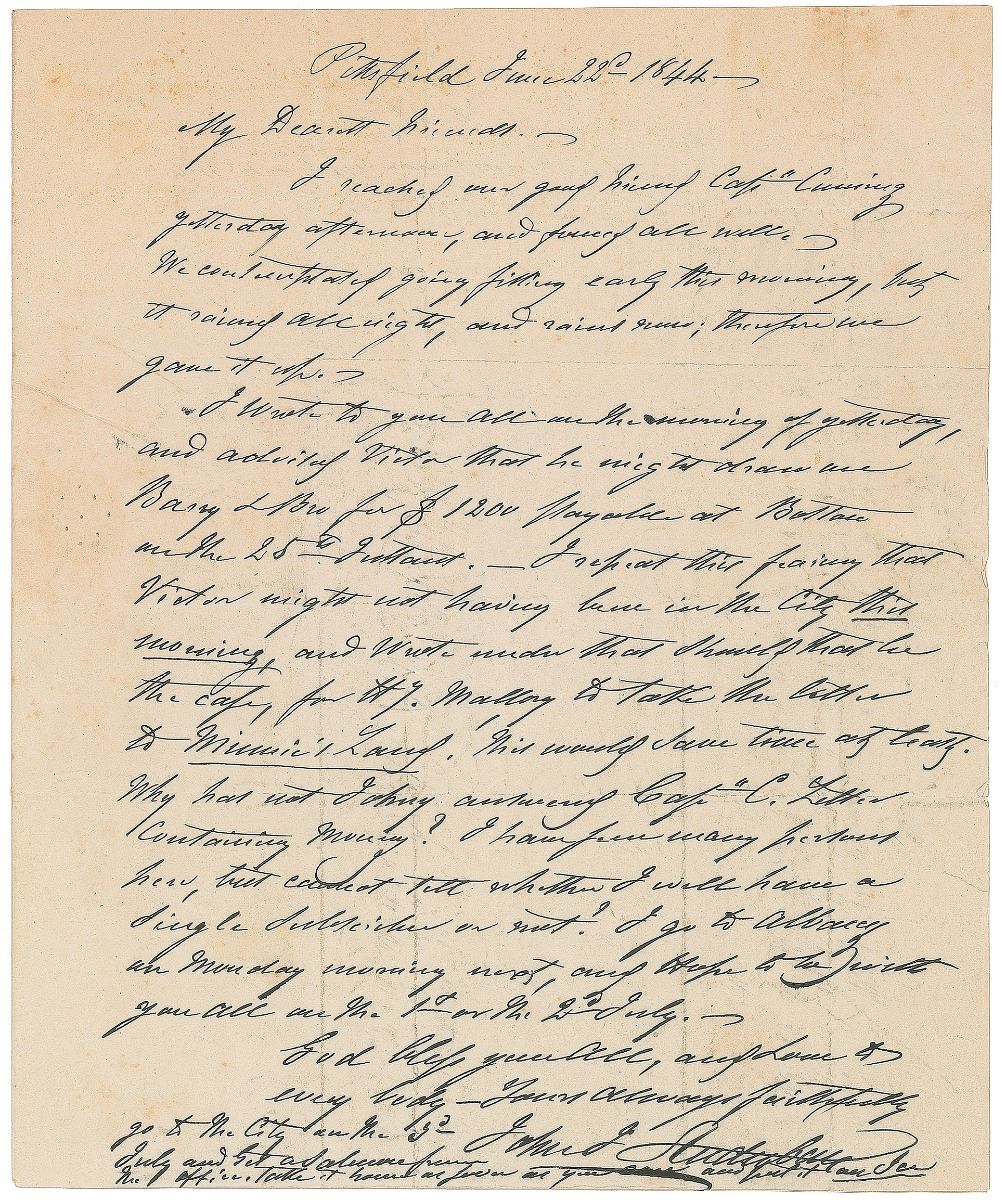 Pittsfield June 22d 1844 —
My Dearest Friends. —
I reached our good friend Capn Cuming
yesterday afternoon, and found all well. —
We contemplated going fishing early this morning, but
it rained all night, and rains now; therefore we
gave it up. —
I Wrote to you all on the morning of yesterday,
and advised Victor that he might draw on
Barry & Bro for $1200 payable at Boston
on the 25th Instant. — I repeat this fearing that
Victor might not having been in the City this
morning, and Wrote under that should that be
the case, for Hy. Mallory to take the letter
to Minnie's Land. This would save time at least.
Why has not Johny answered Capn C. Letter
Containing Money? I have seen many persons
here, but cannot tell whether I will have a
Single Subscriber or not! I go to Albany
on Monday morning next, and Hope to be with
you all on the 1st or the 2d July. —
God bless you All, and Love to
every body — Yours Always faithfully
John J
go to the City on the 3d
July and Get a
the office. take it home as soon as you and put it on